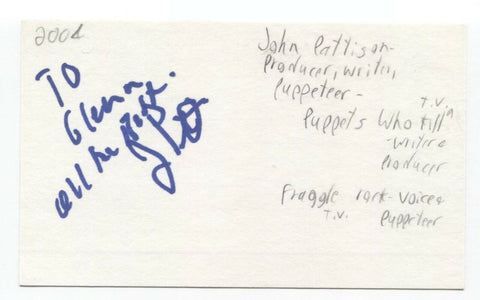 2002
TO
Glenn
all the best.
John Pattison-
Producer, writer,
Puppeteer-
T.V.
Puppets Who Kill
-writer &
Producer
Fraggle rock- Voice &
T.V. Puppeteer